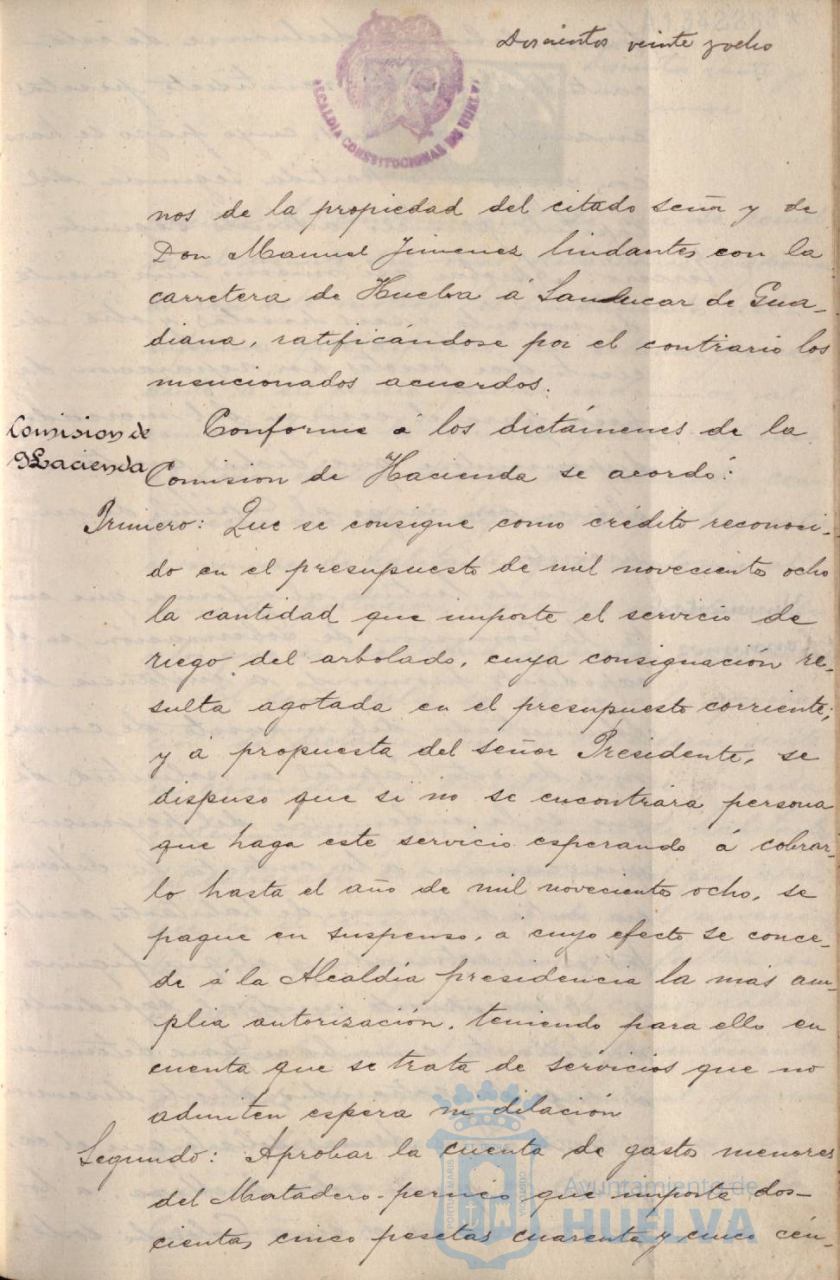 Doscientos veinte y ocho
ALCALDIA CONSTITUCIONAL DE HUELVA
nos de la propiedad del citado señor y de
Don Manuel Jimenez lindantes con la
carretera de Huelva á Sanlucar de Gua-
diana, ratificándose por el contrario los
mencionados acuerdos.
Comision de
Hacienda
Conforme á los dictámenes de la
Comision de Hacienda se acordó:
Primero: Que se consigne como crédito reconoci-
do en el presupuesto de mil novecientos ocho
la cantidad que importe el servicio de
riego del arbolado, cuya consignación re-
sulta agotada en el presupuesto corriente;
y á propuesta del señor Presidente, se
dispuso que si no se encontrara persona
que haga este servicio esperando á cobrar-
lo hasta el año de mil novecientos ocho, se
pague en suspenso, á cuyo efecto se conce-
de á la Alcaldia presidencia la mas am-
plia autorización, teniendo para ello en
cuenta que se trata de servicios que no
admiten espera ni dilación
Segundo: Aprobar la cuenta de gastos menores
del Matadero-pernicio que importe dos-
cientas cinco pesetas cuarenta y cinco cén-
Ayuntamiento de
HUELVA